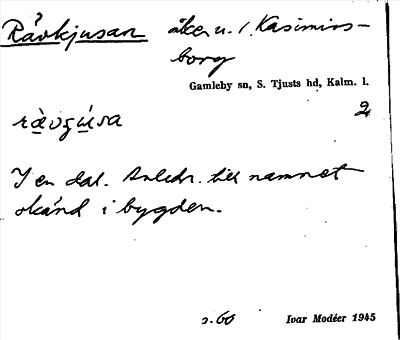 Rävkjusan åker u. /. Kasimirs-
borg
Gamleby sn, S. Tjusts hd, Kalm. l.
2
ràvʒúsa
I en dal. Anledn. till namnet
okänd i bygden.
s. 60 Ivar Modéer 1945